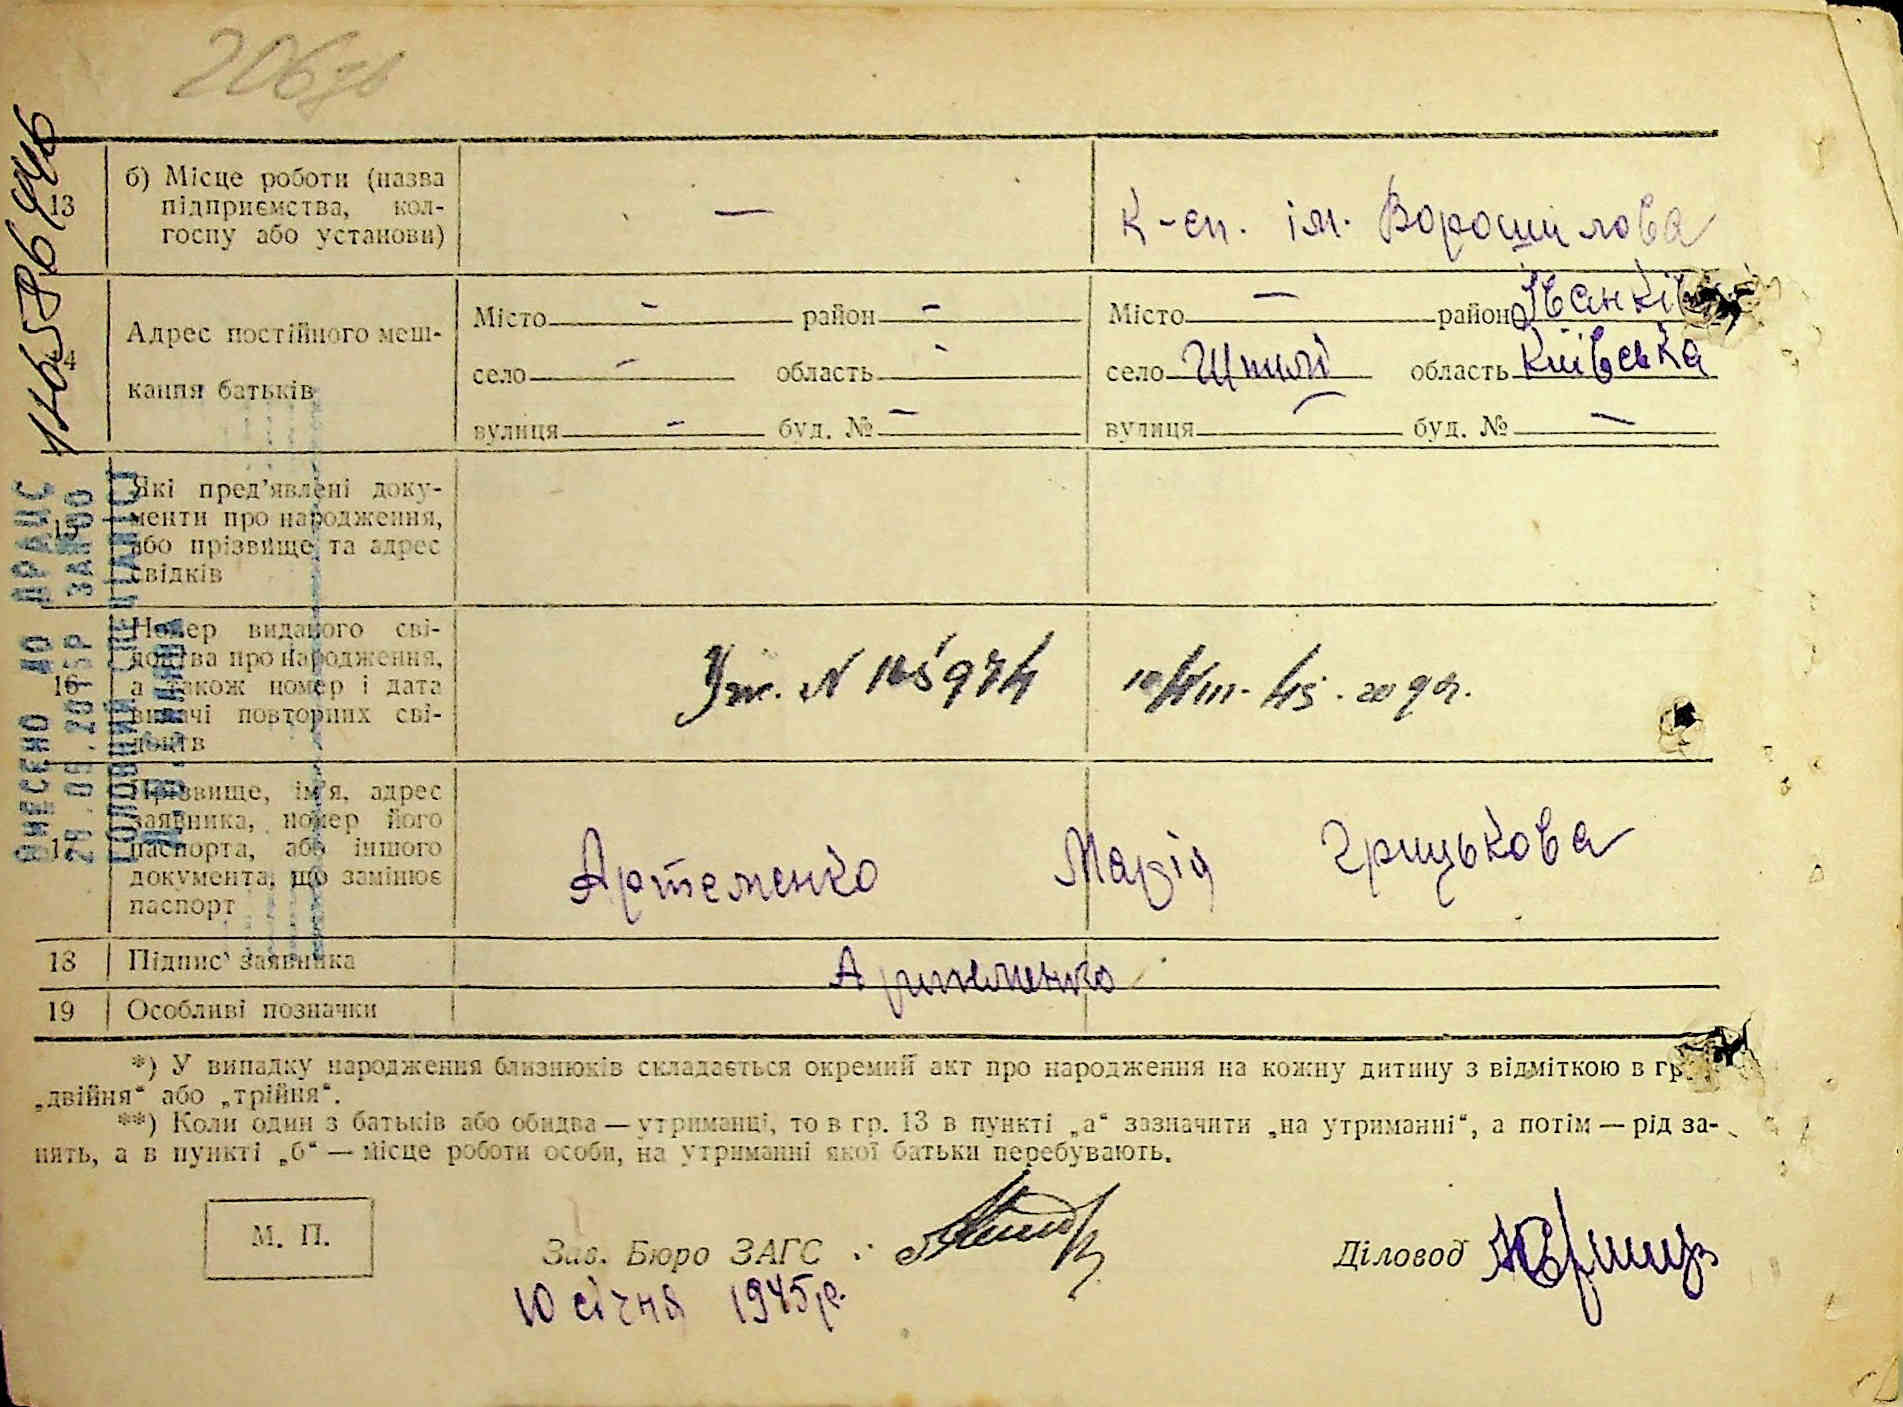 206зв
13
б) Місце роботи (назва
підприємства, кол-
госпу або установи)
—
к-сп. ім. Ворошилова
14
Адрес постійного меш-
кання батьків
Місто — район —
село — область -
вулиця — буд. № —
Місто — район Іванків
село Шпилі область Київська
вулиця — буд. № —
15
Які пред'явлені доку-
менти про народження,
або прізвище та адрес
свідків
16
Номер виданого сві-
доцтва про народження,
а також номер і дата
видачі повторних сві-
доцтв
N 165974
17
Прізвище, ім'я, адрес
заявника, номер його
паспорта, або іншого
документа, що замінює
паспорт
Артеменко Марія Грицькова
18
Підпис заявника
Артеменко
19
Особливі позначки
*) У випадку народження близнюків складається окремий акт про народження на кожну дитину з відміткою в гр.
„двійня“ або „трійня“.
**) Коли один з батьків або обидва — утриманці, то в гр. 13 в пункті „а“ зазначити „на утриманні“, а потім — рід за-
нять, а в пункті „б“ — місце роботи особи, на утриманні якої батьки перебувають.
М. П.
Зав. Бюро ЗАГС
Діловод
10 січня 1945 р.
ВНЕСЕНО ДО ДРАЦС
ГОЛОВНИЙ СПЕЦІАЛІСТ